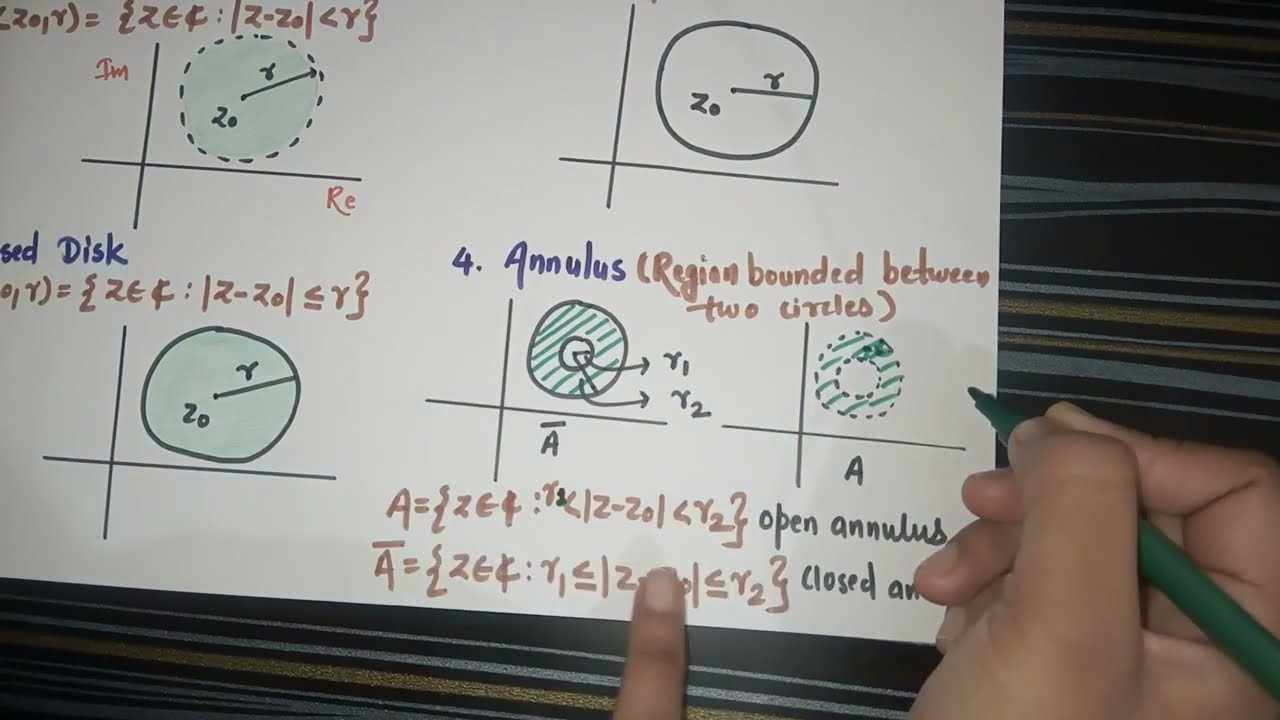 z₀,r) = {z∈ℂ : |z-z₀| <r}
Im
r
z₀
Re
r
z₀
sed Disk
₀,r) = {z∈ℂ : |z-z₀| ≤ r}
r
z₀
4. Annulus (Region bounded between
two circles)
r₁
r₂
Ā
A
A = {z∈ℂ : r₁<|z-z₀| <r₂} open annulus
Ā = {z∈ℂ : r₁ ≤ |z-z₀| ≤ r₂} Closed an